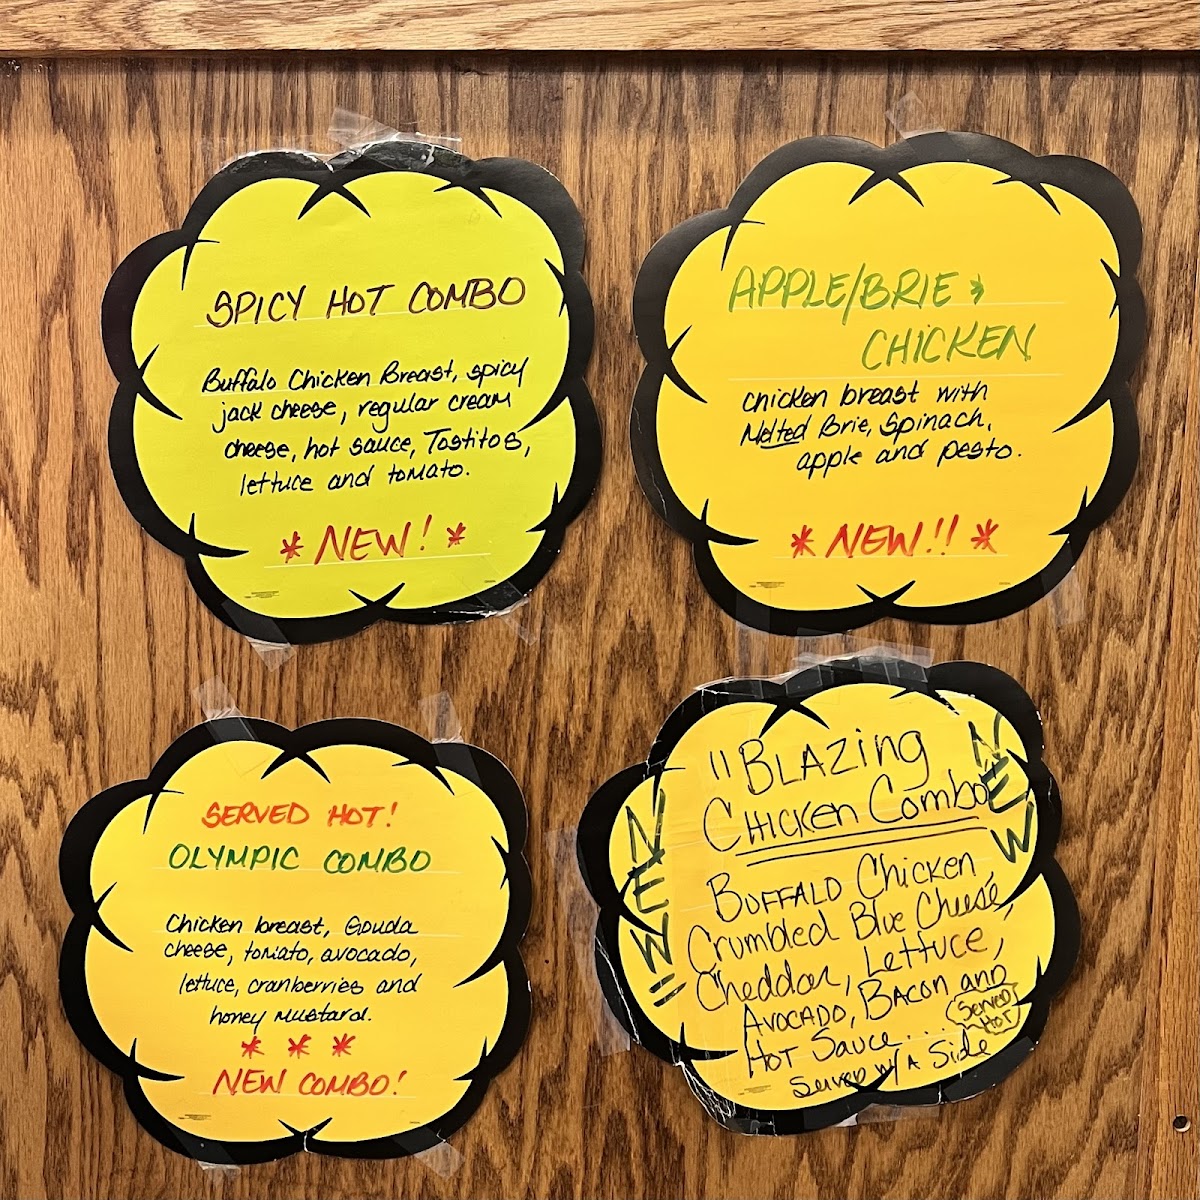 SPICY HOT COMBO
Buffalo Chicken Breast, spicy
jack cheese, regular cream
cheese, hot sauce, Tostitos,
lettuce and tomato.
* NEW! *
APPLE/BRIE &
CHICKEN
chicken breast with
Melted Brie, Spinach,
apple and pesto.
* NEW!! *
SERVED HOT!
OLYMPIC COMBO
Chicken breast, Gouda
cheese, tomato, avocado,
lettuce, cranberries and
honey mustard.
* * *
NEW COMBO!
"BLAZing
CHICKEN Combo
NEW
"NEW"
BUFFALO Chicken,
Crumbled Blue Cheese,
Cheddar, Lettuce,
AVOCADO, BACON AND
HOT SAUCE....
SERVED HOT
SERVED W/A Side